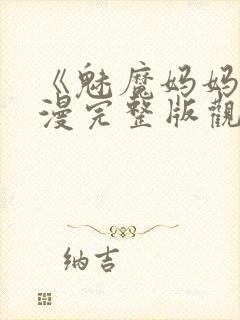 《魅魔妈妈
漫完整版觀
纳吉